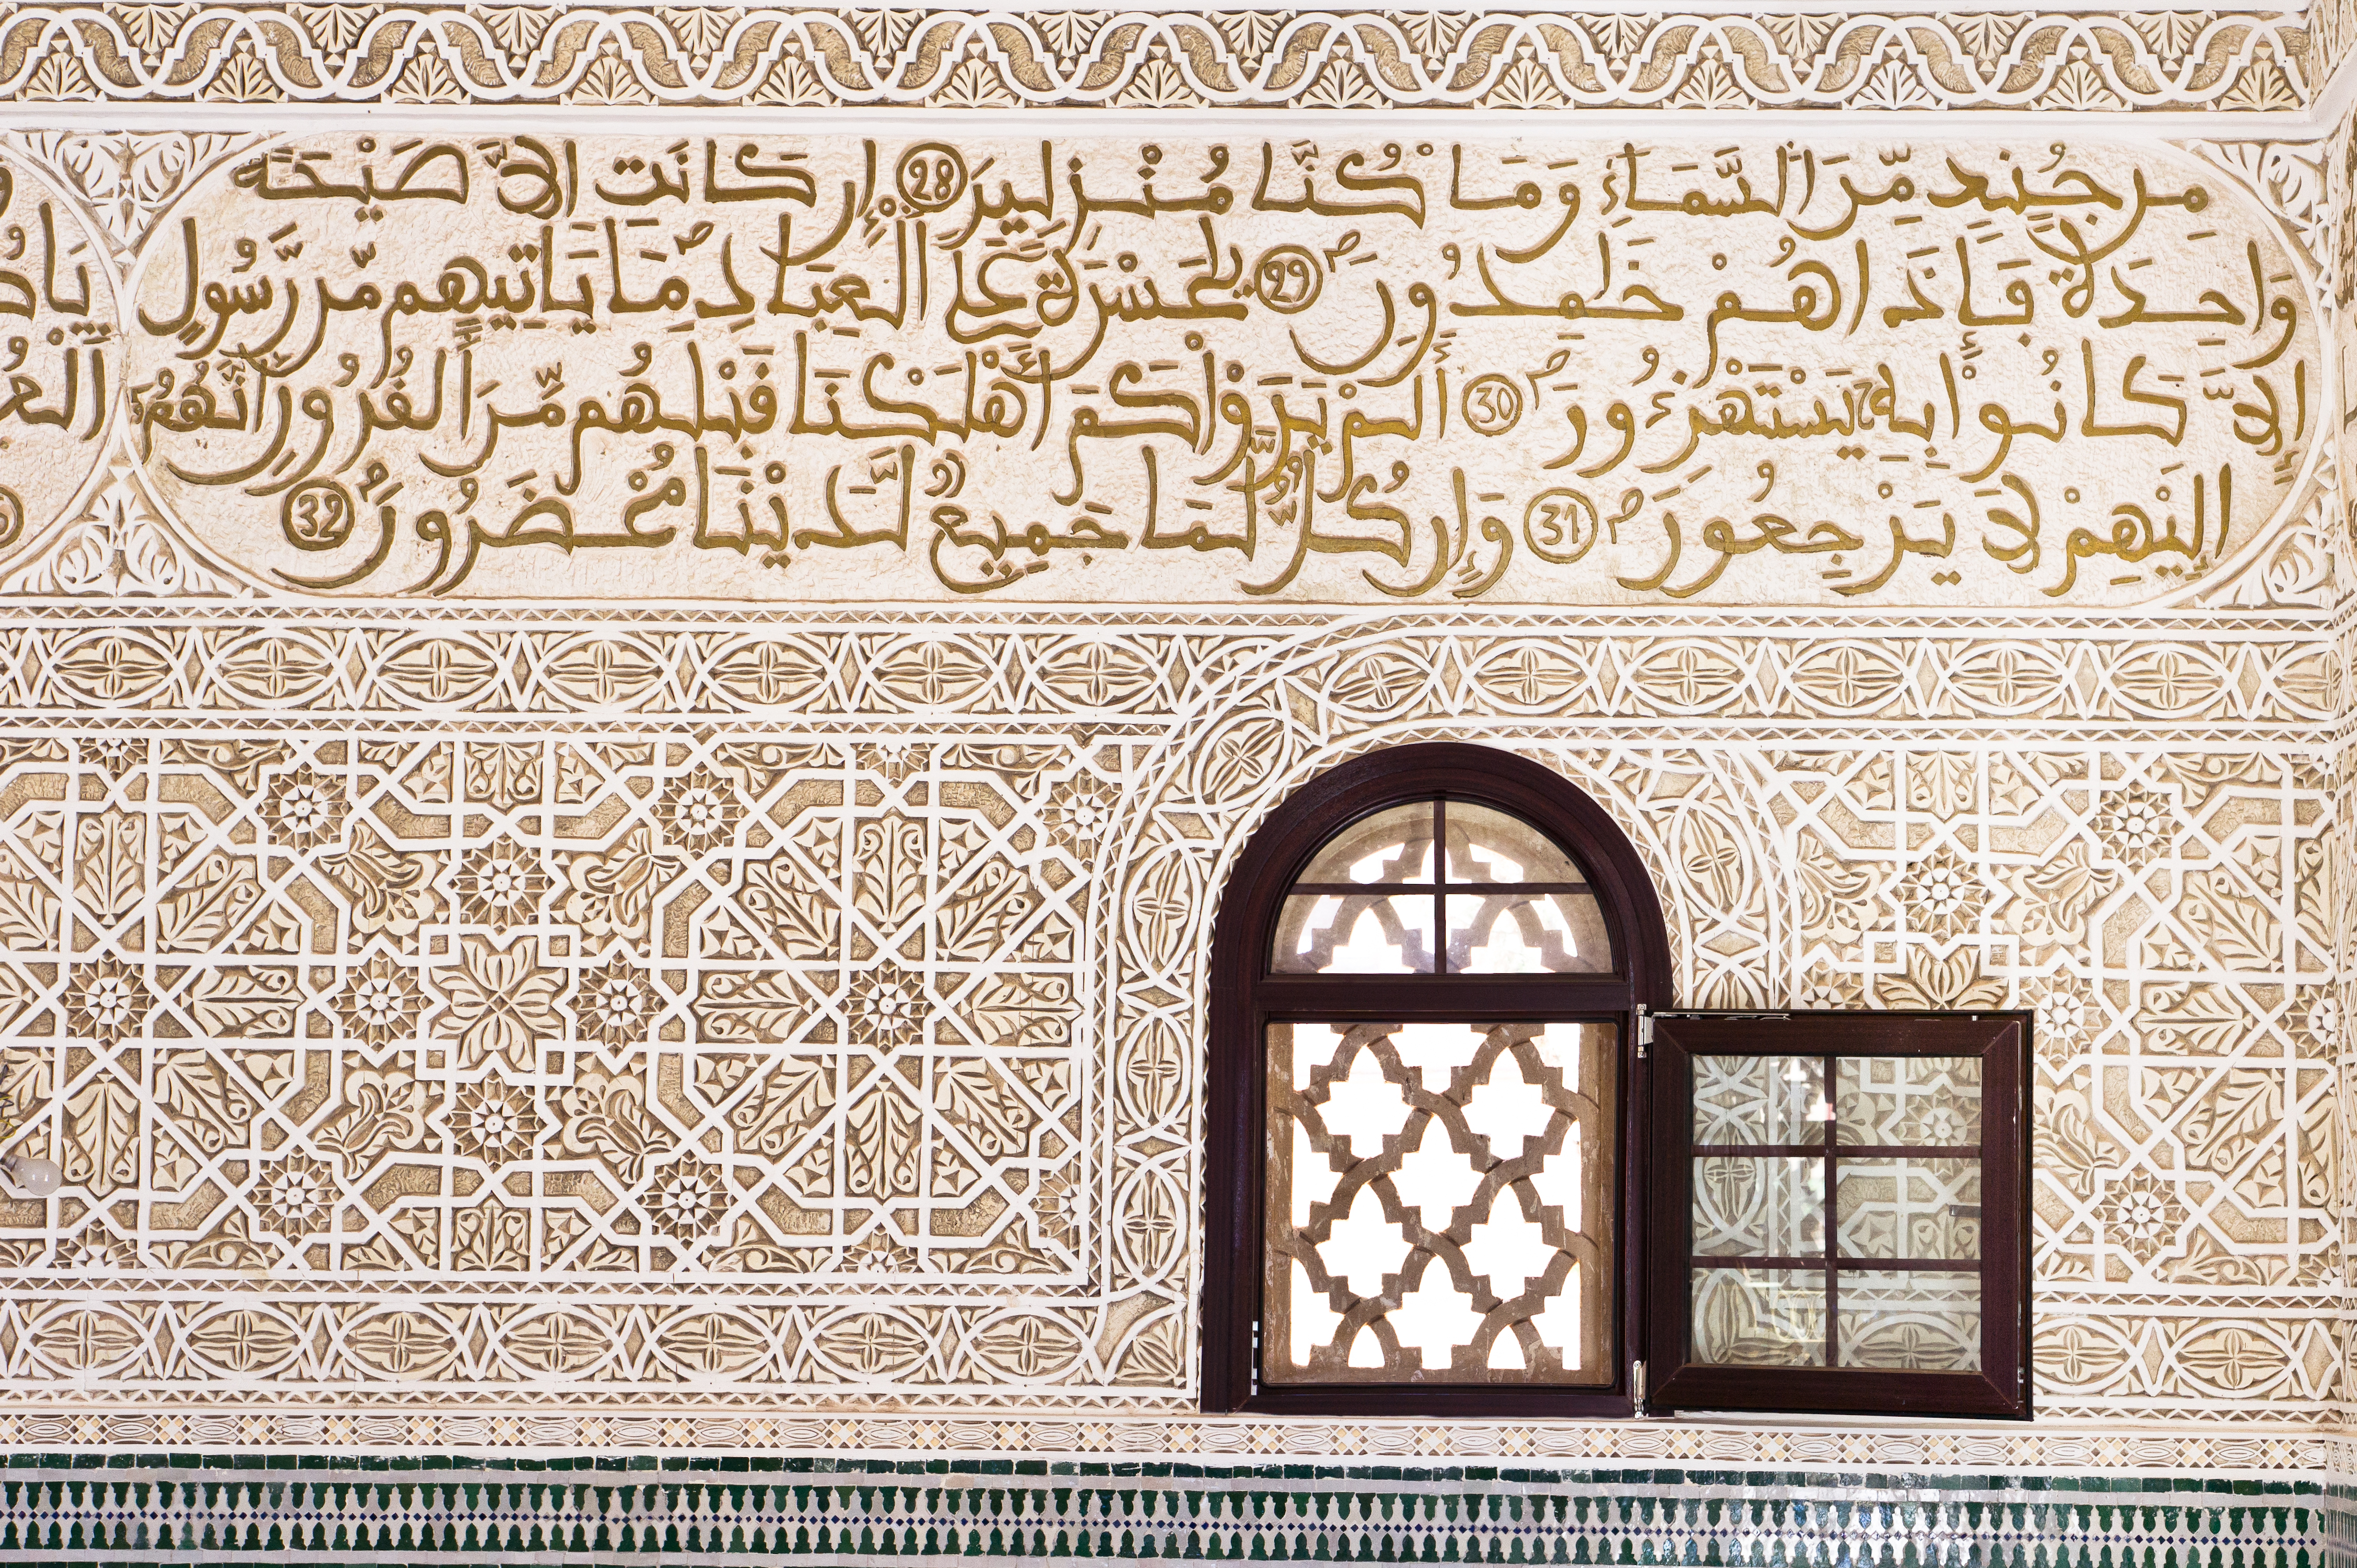 مِن جُندٍ مِّنَ اَلسَّمَآءِ وَمَا كُنَّا مُنْزِلِينَ 28 إِن كَانَتِ اِلَّا صَيْحَةً
وَاحِدَةً فَإِذَا هُمْ خَٰمِدُونَ 29 يَٰحَسْرَةً عَلَى اَلْعِبَادِ مَا يَاتِيهِم مِّن رَّسُولٍ
اِلَّا كَانُواْ بِهِ يَسْتَهْزِءُونَ 30 أَلَمْ يَرَوْاْ كَمَ اَهْلَكْنَا قَبْلَهُم مِّنَ اَلْقُرُونِ أَنَّهُمُ
إِلَيْهِمْ لَا يَرْجِعُونَ 31 وَإِن كُلٌّ لَّمَا جَمِيعٌ لَّدَيْنَا مُحْضَرُونَ 32